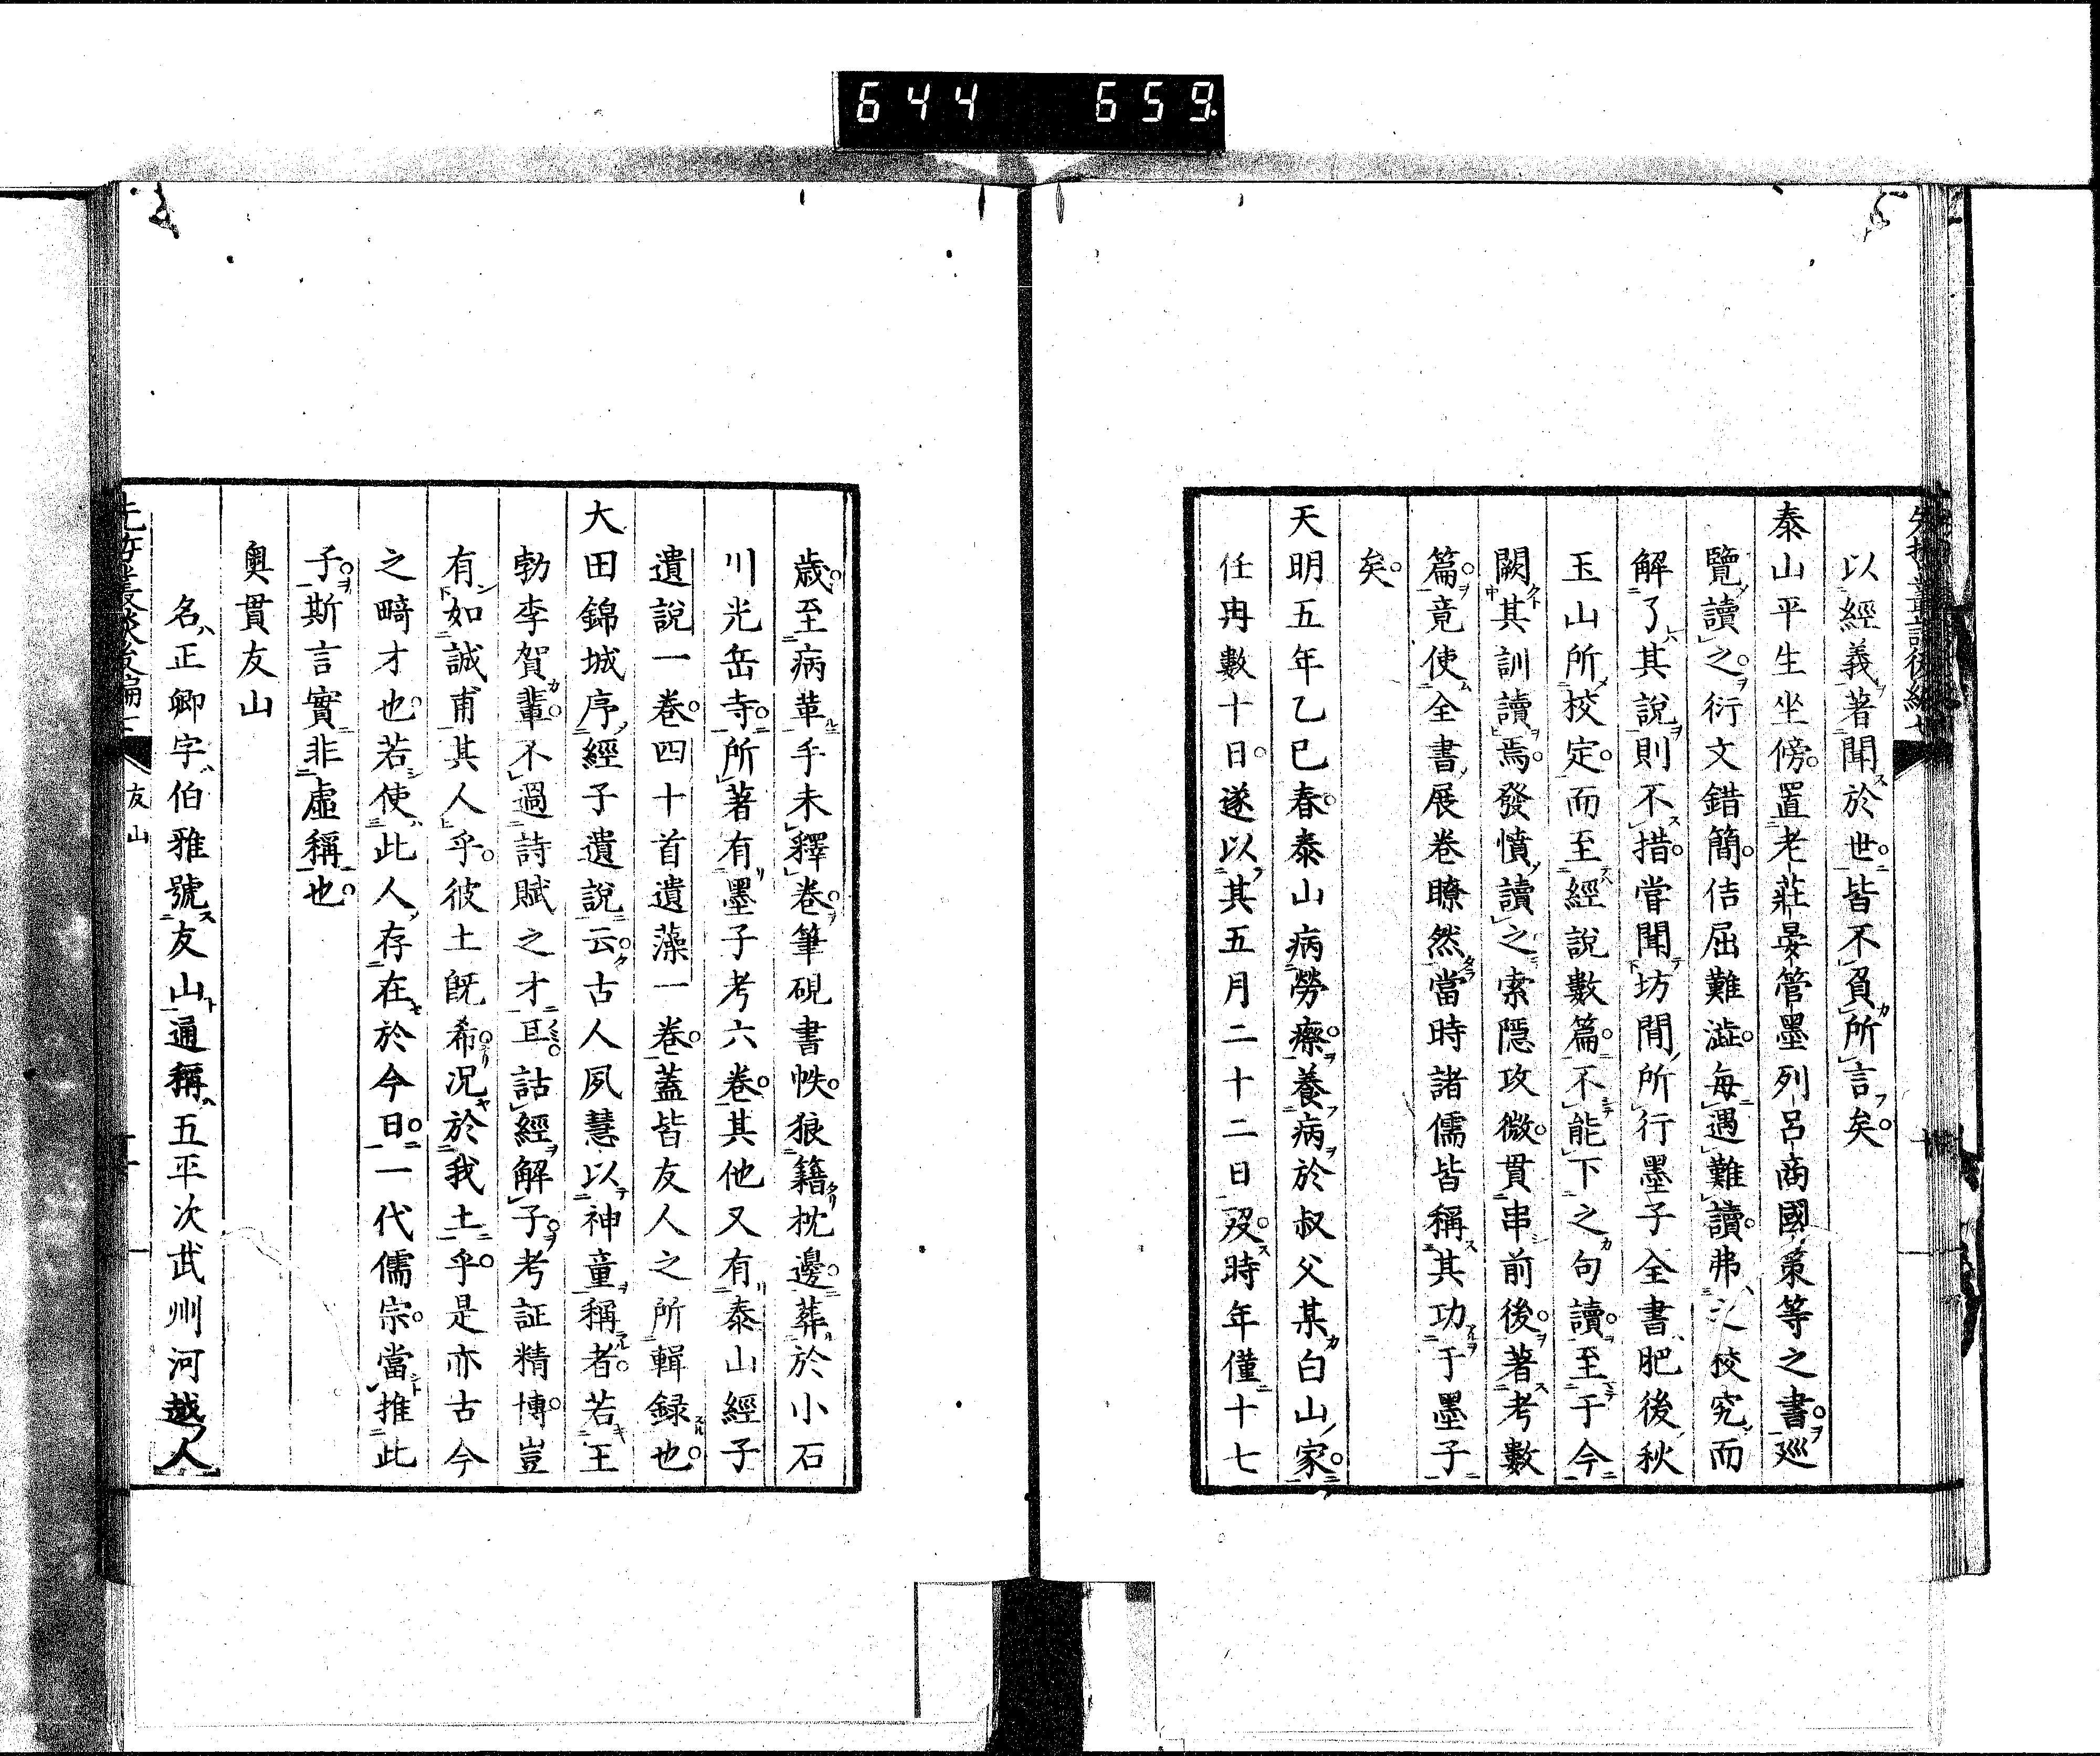 644 659
先哲叢談後編七
以經義著聞於世皆不負所言矣
泰山平生坐傍置老莊晏管墨列呂商國策等之書巡
覽讀之衍文錯簡佶屈難澁每遇難讀弗之校究而
解了其說則不措甞聞坊間所行墨子全書肥後秋
玉山所校定而至經說數篇不能下之句讀至于今
闕其訓讀焉發憤讀之索隱攻微貫串前後著考數
篇竟使全書展卷瞭然當時諸儒皆稱其功于墨子
矣
天明五年乙巳春泰山病勞瘵養病於叔父某白山家
任冉數十日遂以其五月二十二日歿時年僅十七
歲至病革手未釋卷筆硯書帙狼籍枕邊葬於小石
川光岳寺所著有墨子考六卷其他又有泰山經子
遺說一卷四十首遺藻一卷蓋皆友人之所輯録也
大田錦城序經子遺說云古人夙慧以神童稱者若王
勃李賀輩不過詩賦之才耳詁經解子考証精博豈
有如誠甫其人乎彼土旣希況於我土乎是亦古今
之畸才也若使此人存在於今日一代儒宗當推此
子斯言實非虛稱也
奥貫友山
名正卿字伯雅號友山通稱五平次武州河越人
先哲叢談後編七
友山